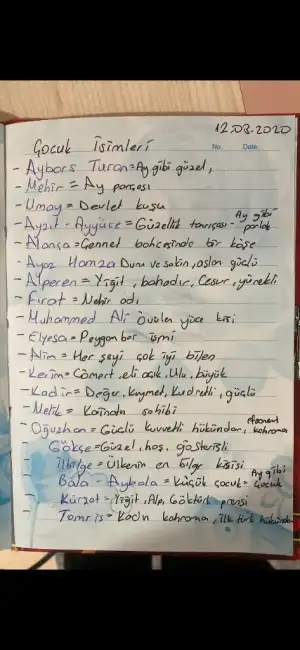 12.03.2020
No. Date.
Çocuk İsimleri
- Aybars Turan = Ay gibi güzel,
- Mehir = Ay parçası
- Umay = Devlet kuşu
- Ayzıt - Aygüce = Güzellik tanrıçası - Ay gibi parlak
- Alança = Cennet bahçesinde bir köşe
- Ayaz Hamza Duru ve sakin, aslan güçlü
- Alperen = Yiğit, bahadır, Cesur, yürekli
- Fırat = Nehir adı
- Muhammed Ali Övülen yüce kişi
- Elyesa = Peygamber ismi
- Alim = Her şeyi çok iyi bilen
- Kerim = Cömert, eli açık, Ulu, büyük
- Kadir = Değer, kıymet, Kudretli, güçlü
- Melik = Kainatın sahibi
- Oğuzhan = Güçlü kuvvetli hükümdar, kahraman
- Gökçe = Güzel, hoş, gösterişli
- İlbilge = Ülkenin en bilge kişisi
- Bala - Aybala = Küçük çocuk = Ay gibi Çocuk
- Kürşat = Yiğit, Alp, Göktürk prensi
- Tomris = Kadın kahraman, ilk türk hükümdar